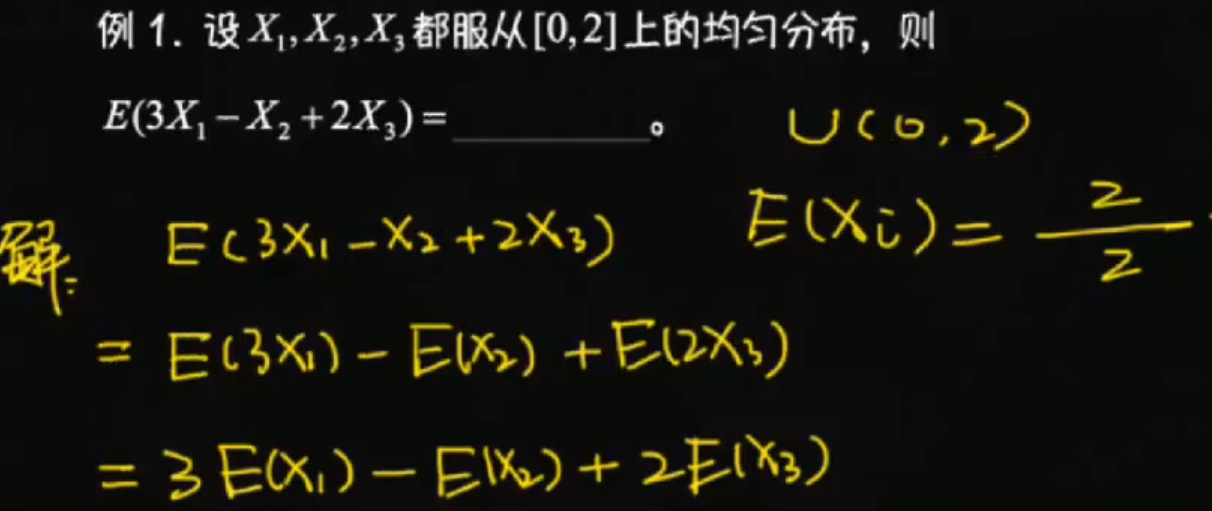 例 1. 设 X₁, X₂, X₃ 都服从 [0, 2] 上的均匀分布，则
E(3X₁ − X₂ + 2X₃) = ________。
U(0, 2)
E(Xi) = 2/2
解: E(3X₁ − X₂ + 2X₃)
= E(3X₁) − E(X₂) + E(2X₃)
= 3E(X₁) − E(X₂) + 2E(X₃)